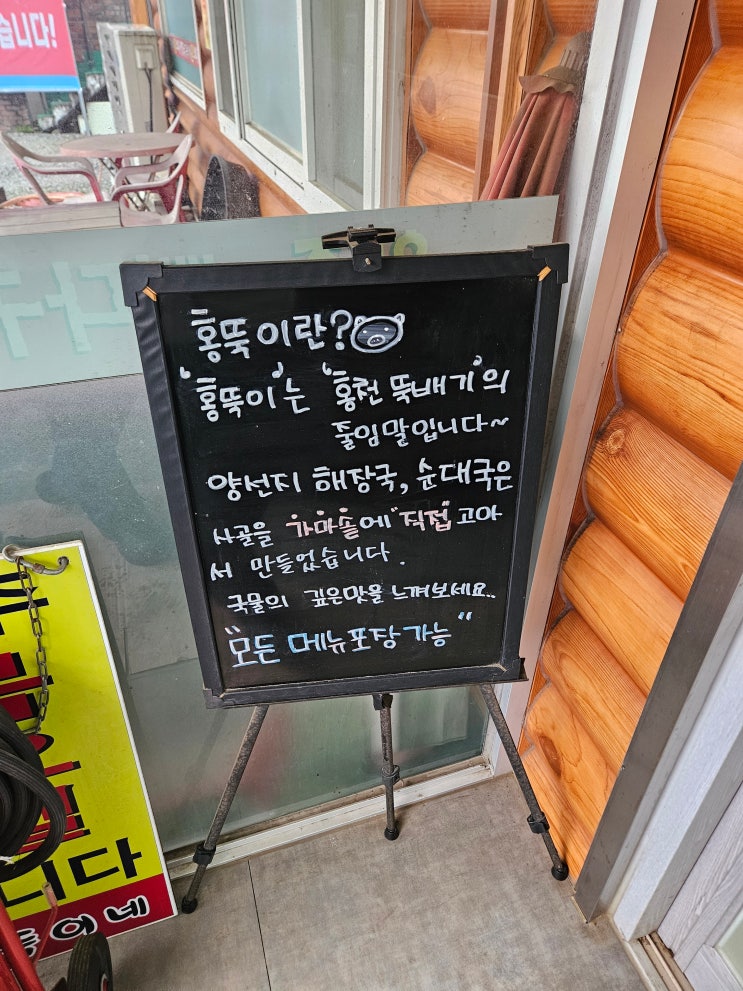 습니다!
홍뚝이란?
'홍뚝이'는 '홍천 뚝배기'의
줄임말입니다~
양선지 해장국, 순대국은
사골을 가마솥에 "직접" 고아
서 만들었습니다.
국물의 깊은맛을 느껴보세요..
"모든 메뉴포장가능"
니다